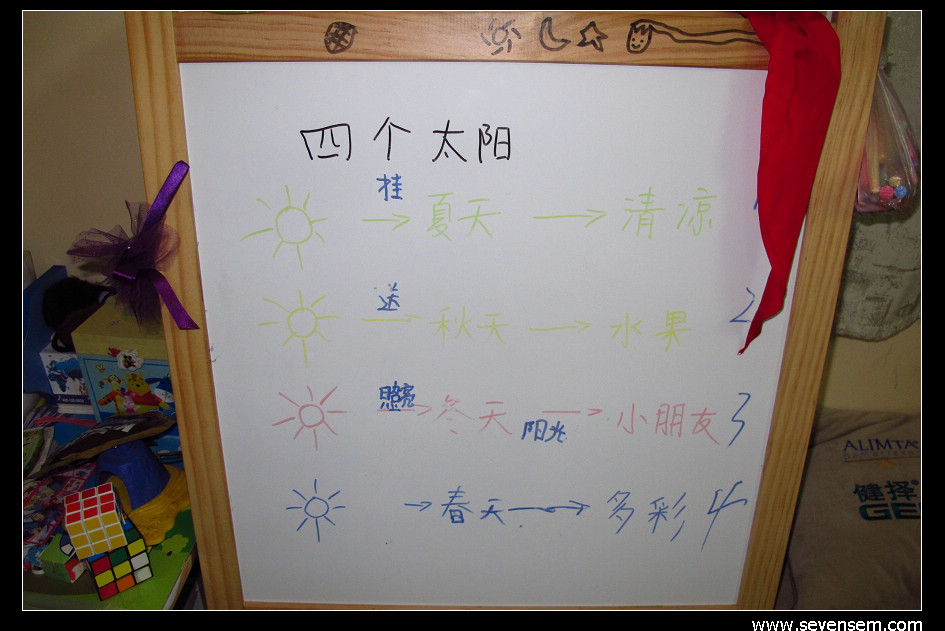 四个太阳
挂
夏天 清凉 1
送
秋天 水果 2
照亮
冬天 阳光 小朋友 3
春天 多彩 4
ALIMTA
健择
GE
www.sevensem.com